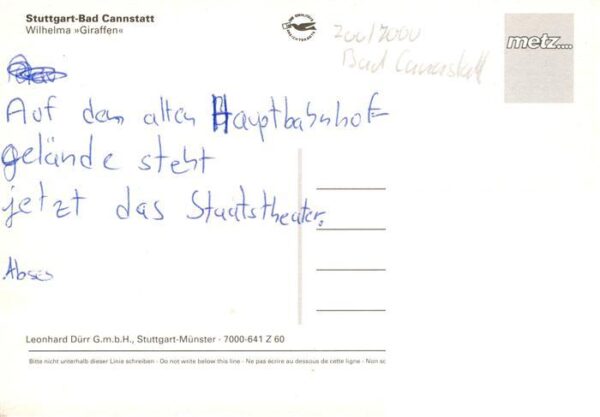 Stuttgart-Bad Cannstatt
Wilhelma »Giraffen«
Zoo/7000
Bad Cannstatt
metz....
Auf dem alten Hauptbahnhof-
gelände steht
jetzt das Staatstheater.
Leonhard Dürr G.m.b.H., Stuttgart-Münster · 7000-641 Z 60
Bitte nicht unterhalb dieser Linie schreiben · Do not write below this line · Ne pas écrire au dessous de cette ligne · Non sc